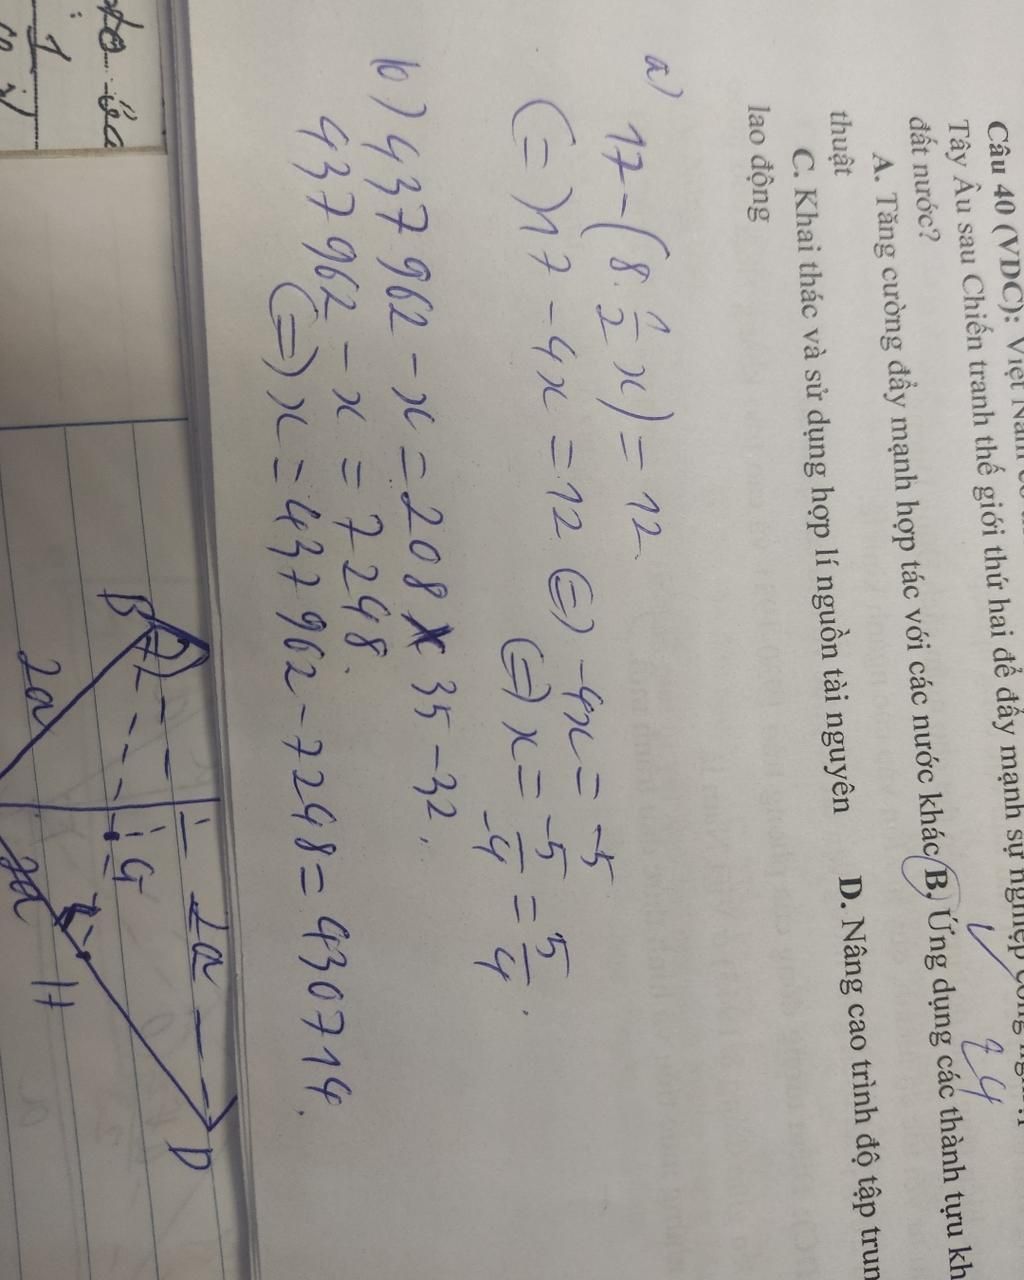 Câu 40 (VDC): Việt Nam
Tây Âu sau Chiến tranh thế giới thứ hai để đẩy mạnh sự nghiệp công
đất nước?
24
A. Tăng cường đẩy mạnh hợp tác với các nước khác B. Ứng dụng các thành tựu kh
thuật
C. Khai thác và sử dụng hợp lí nguồn tài nguyên D. Nâng cao trình độ tập trun
lao động
a)
17 - (8 . 1/2 x) = 12
(=) 17 - 4x = 12 (=) -4x = -5
(=) x = -5/-4 = 5/4.
b) 437 962 - x = 208 x 35 - 32.
437 962 - x = 7 248.
(=) x = 437 962 - 7 248 = 430 714.
B
2a
D
G
2a
2a
H
1